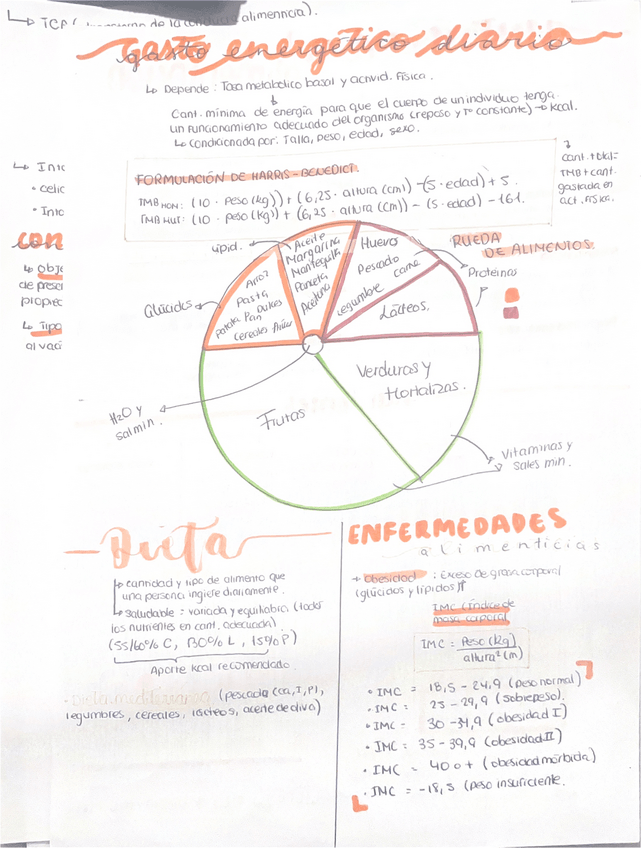 ↳ TCA ( de la conducta alimenticia).
gasto energético diario
↳ Depende: Tasa metabólico basal y activid. Física.
↓
Cant. mínima de energía para que el cuerpo de un individuo tenga
un funcionamiento adecuado del organismo (reposo y Tª constante) → kcal.
↳ condicionada por: Talla, peso, edad, sexo.
↳ Into
• celic
• Into
con
↳ obje
de presen
propiec
↳ Tipo
al vací
FORMULACIÓN DE HARRIS-BENEDICT.
TMB HOM: (10 · peso (kg)) + (6,25 · altura (cm)) - (5 · edad) + 5.
TMB MUJ: (10 · peso (kg)) + (6,25 · altura (cm)) - (5 · edad) - 161.
↓
cant. total=
TMB + cant.
gastada en
act. Física.
RUEDA
DE ALIMENTOS.
Lípid.
Glúcidos
Proteínas
Arroz
Pasta
Patata Pan Dulces
Cereales Azúcar
Aceite
Margarina
Mantequilla
Panceta
Aceituna
Huevos
Pescado
carne
Legumbre
Lácteos.
Verduras y
Hortalizas.
Frutas
H2O y
sal min.
Vitaminas y
sales min.
Dieta
↳ cantidad y tipo de alimento que
una persona ingiere diariamente.
↳ Saludable: variada y equilibria (todos
los nutrientes en cant. adecuada).
(55/60% C, 30% L, 15% P)
Aporte kcal recomendado.
- Dieta mediterránea (pescado (Ca, I, P),
legumbres, cereales, lácteos, aceite de oliva)
ENFERMEDADES
alimenticias
→ Obesidad: Exceso de grasa corporal
(glúcidos y lípidos)↑
IMC (índice de
masa corporal
IMC = Peso (kg)
altura² (m)
• IMC = 18,5 - 24,9 (peso normal)
• IMC = 25 - 29,9 (sobrepeso).
• IMC = 30 - 34,9 (obesidad I)
• IMC = 35 - 39,9 (obesidad II)
• IMC = 40 o + (obesidad mórbida)
• IMC = -18,5 (peso insuficiente.